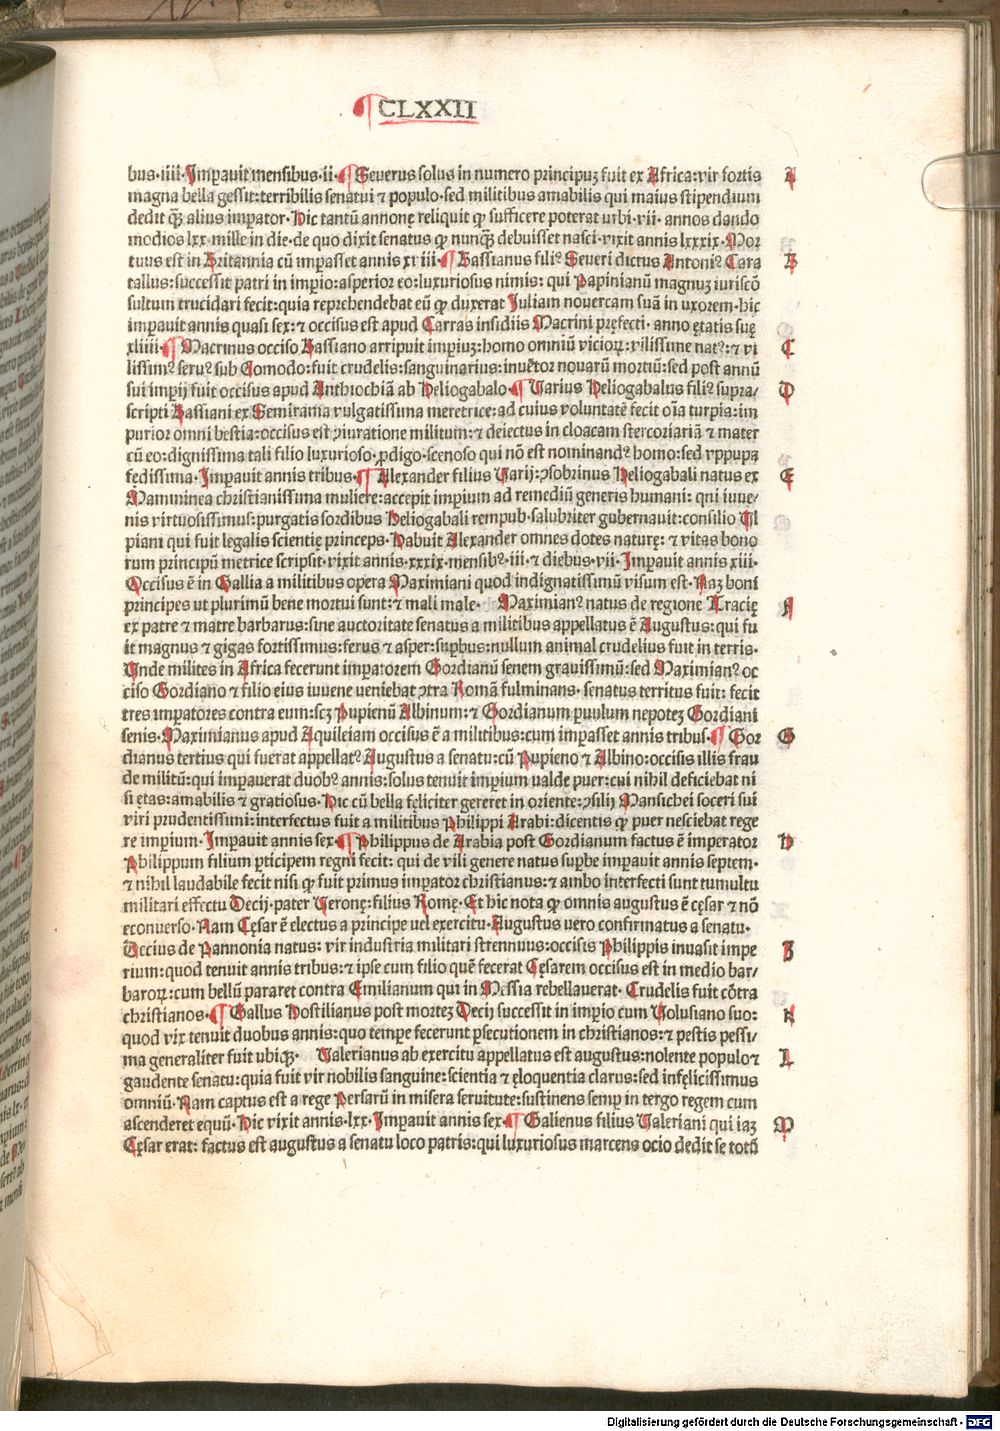 CLXXII
bus·iiii·Imꝑauit mensibus·ii·¶Seuerus solus in numero principuꝫ fuit ex Africa:vir fortis A
magna bella gessit:terribilis senatui ⁊ populo·sed militibus amabilis qui maius stipendium
dedit qͣ̄ alius imꝑator·Hic tantū annonę reliquit ꝙ sufficere poterat urbi·vii· annos dando
modios lxx·mille in die·de quo dixit senatus ꝙ nunqͣ̄ debuisset nasci·vixit annis lxxxix·Mor
tuus est in Britannia cū imꝑasset annis xviii·¶Bassianus fili⁹ Seueri dictus Antoni⁹ Cara B
tallus:successit patri in impio:asperior eo:luxuriosus nimis: qui Papinianū magnuꝫ iuriscō
sultum trucidari fecit:quia reprehendebat eū ꝙ duxerat Juliam nouercam suā in uxorem·hic
imꝑauit annis quasi sex:⁊ occisus est apud Carras insidiis Macrini pręfecti· anno ętatis suę
xliiii·¶Macrinus occiso Bassiano arripuit imꝑiuꝫ:homo omniū vicioꝝ:vilissime nat⁹:⁊ vi C
lissim⁹ seru⁹ sub Comodo:fuit crudelis:sanguinarius:inuētor nouarū mortiū:sed post annū
sui imꝑij fuit occisus apud Anthiochiā ab Heliogabalo·¶Varius Heliogabalus fili⁹ supra/ D
scripti Bassiani ex Semirama vulgatissima meretrice:ad cuius voluntatē fecit oīa turpia:im
purior omni bestia:occisus est ꝯiuratione militum:⁊ deiectus in cloacam stercoriariā ⁊ mater
cū eo:dignissima tali filio luxurioso·ꝓdigo·scenoso qui nō est nominand⁹ homo:sed vppupa
fedissima·Imꝑauit annis tribus·¶Alexander filius Varij:ꝯsobrinus Heliogabali natus ex E
Mamminea christianissima muliere:accepit imꝑium ad remediū generis humani: qui iuue/
nis virtuosissimus:purgatis sordibus Heliogabali rempub·salubriter gubernauit:consilio Vl
piani qui fuit legalis scientię princeps·Habuit Alexander omnes dotes naturę:⁊ vitas bono
rum principū metrice scripsit·vixit annis·xxix·mensib⁹·iii·⁊ diebus·vii·Imꝑauit annis xiii·
Occisus ē in Gallia a militibus opera Maximiani quod indignatissimū visum est·Naꝫ boni
principes ut plurimū bene mortui sunt:⁊ mali male· Maximian⁹ natus de regione Tracię F
ex patre ⁊ matre barbarus:sine auctoritate senatus a militibus appellatus ē Augustus:qui fu
it magnus ⁊ gigas fortissimus:ferus ⁊ asper:suꝑbus:nullum animal crudelius fuit in terris·
Unde milites in Africa fecerunt imꝑatorem Gordianū senem grauissimū:sed Maximian⁹ oc
ciso Gordiano ⁊ filio eius iuuene veniebat ꝯtra Romā fulminans·senatus territus fuit: fecit
tres imꝑatores contra eum:scꝫ Pupienū Albinum:⁊ Gordianum ꝑuulum nepoteꝫ Gordiani
senis·Maximianus apud Aquileiam occisus ē a militibus:cum imꝑasset annis tribus·¶Gor G
dianus tertius qui fuerat appellat⁹ Augustus a senatu:cū Pupieno ⁊ Albino:occisis illis frau
de militū:qui imꝑauerat duob⁹ annis:solus tenuit imꝑium valde puer:cui nihil deficiebat ni
si ętas:amabilis ⁊ gratiosus·Hic cū bella fęliciter gereret in oriente:ꝯsilij Mansichei soceri sui
viri prudentissimi:interfectus fuit a militibus Philippi Arabi:dicentis ꝙ puer nesciebat rege
re imꝑium·Imꝑauit annis sex·¶Philippus de Arabia post Gordianum factus ē imperator H
Philippum filium ꝑticipem regni fecit: qui de vili genere natus suꝑbe imꝑauit annis septem·
⁊ nihil laudabile fecit nisi ꝙ fuit primus imꝑator christianus:⁊ ambo interfecti sunt tumultu
militari effectu Decij·pater Veronę:filius Romę·Et hic nota ꝙ omnis augustus ē cęsar ⁊ nō
econuerso·Nam Cęsar ē electus a principe uel exercitu·Augustus vero confirmatus a senatu·
Deccius de Pannonia natus: vir industria militari strennuus:occisis Philippis inuasit impe I
rium:quod tenuit annis tribus:⁊ ipse cum filio quē fecerat Cęsarem occisus est in medio bar/
baroꝝ:cum bellū pararet contra Emilianum qui in Messia rebellauerat· Crudelis fuit cōtra
christianos·¶Gallus Hostilianus post morteꝫ Decij successit in imꝑio cum Volusiano suo: K
quod vix tenuit duobus annis:quo tempe fecerunt ꝑsecutionem in christianos:⁊ pestis pessi/
ma generaliter fuit ubiqꝫ· Valerianus ab exercitu appellatus est augustus:nolente populo ⁊ L
gaudente senatu:quia fuit vir nobilis sanguine:scientia ⁊ ęloquentia clarus:sed infęlicissimus
omniū·Nam captus est a rege Persarū in misera seruitute:sustinens semꝑ in tergo regem cum
ascenderet equū·Hic vixit annis·lxx·Imꝑauit annis sex·¶Galienus filius Valeriani qui iaꝫ M
Cęsar erat: factus est augustus a senatu loco patris:qui luxuriosus marcens ocio dedit se totū
Digitalisierung gefördert durch die Deutsche Forschungsgemeinschaft - DFG